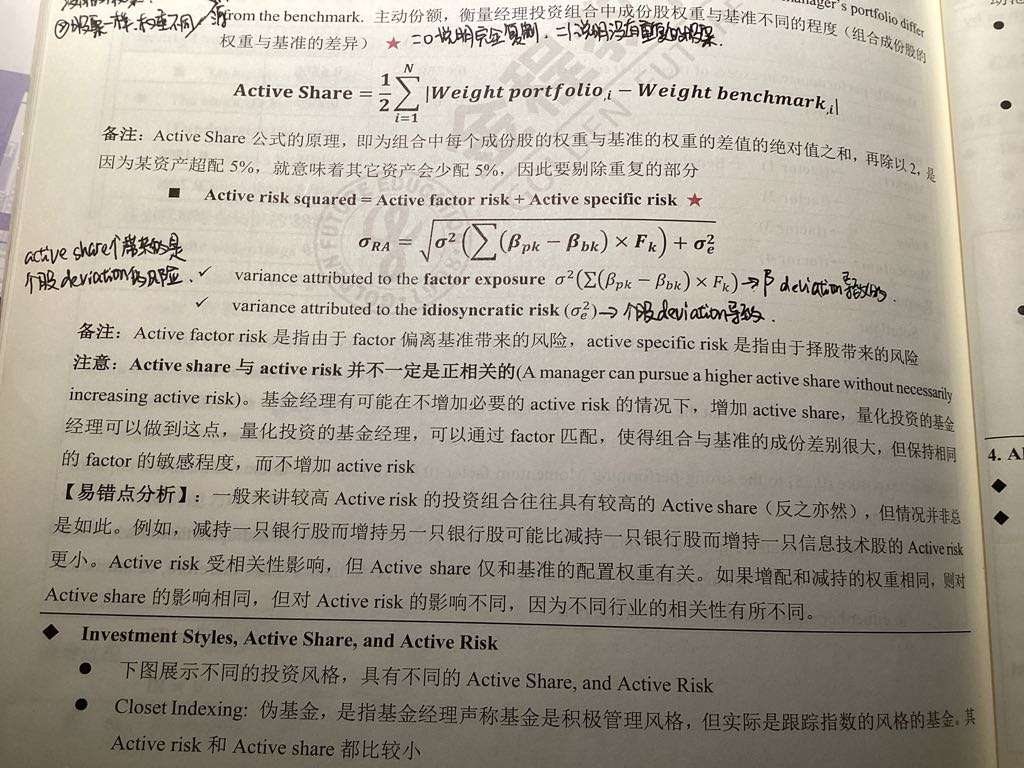 ②股票一样,权重不同
from the benchmark. 主动份额，衡量经理投资组合中成份股权重与基准不同的程度（组合成份股的
nager's portfolio differ
权重与基准的差异）★ =0说明完全复制, =1说明没有重复的股票.
Active Share = 1/2 ∑_{i=1}^{N} |Weight portfolio,i − Weight benchmark,i|
备注：Active Share 公式的原理，即为组合中每个成份股的权重与基准的权重的差值的绝对值之和，再除以 2，是
因为某资产超配 5%，就意味着其它资产会少配 5%，因此要剔除重复的部分
■ Active risk squared = Active factor risk + Active specific risk ★
σ_RA = √(σ²(∑(β_pk − β_bk) × F_k) + σ_e²)
active share 个带来的是
个股deviation的风险.
✓ variance attributed to the factor exposure σ²(∑(β_pk − β_bk) × F_k) → β deviation导致的.
✓ variance attributed to the idiosyncratic risk (σ_e²) → 个股deviation导致.
备注：Active factor risk 是指由于 factor 偏离基准带来的风险，active specific risk 是指由于择股带来的风险
注意：Active share 与 active risk 并不一定是正相关的(A manager can pursue a higher active share without necessarily
increasing active risk)。基金经理有可能在不增加必要的 active risk 的情况下，增加 active share，量化投资的基金
经理可以做到这点，量化投资的基金经理，可以通过 factor 匹配，使得组合与基准的成份差别很大，但保持相同
的 factor 的敏感程度，而不增加 active risk
【易错点分析】：一般来讲较高 Active risk 的投资组合往往具有较高的 Active share（反之亦然），但情况并非总
是如此。例如，减持一只银行股而增持另一只银行股可能比减持一只银行股而增持一只信息技术股的 Active risk
更小。Active risk 受相关性影响，但 Active share 仅和基准的配置权重有关。如果增配和减持的权重相同，则对
Active share 的影响相同，但对 Active risk 的影响不同，因为不同行业的相关性有所不同。
◆ Investment Styles, Active Share, and Active Risk
● 下图展示不同的投资风格，具有不同的 Active Share, and Active Risk
● Closet Indexing: 伪基金，是指基金经理声称基金是积极管理风格，但实际是跟踪指数的风格的基金。其
Active risk 和 Active share 都比较小
4. Al